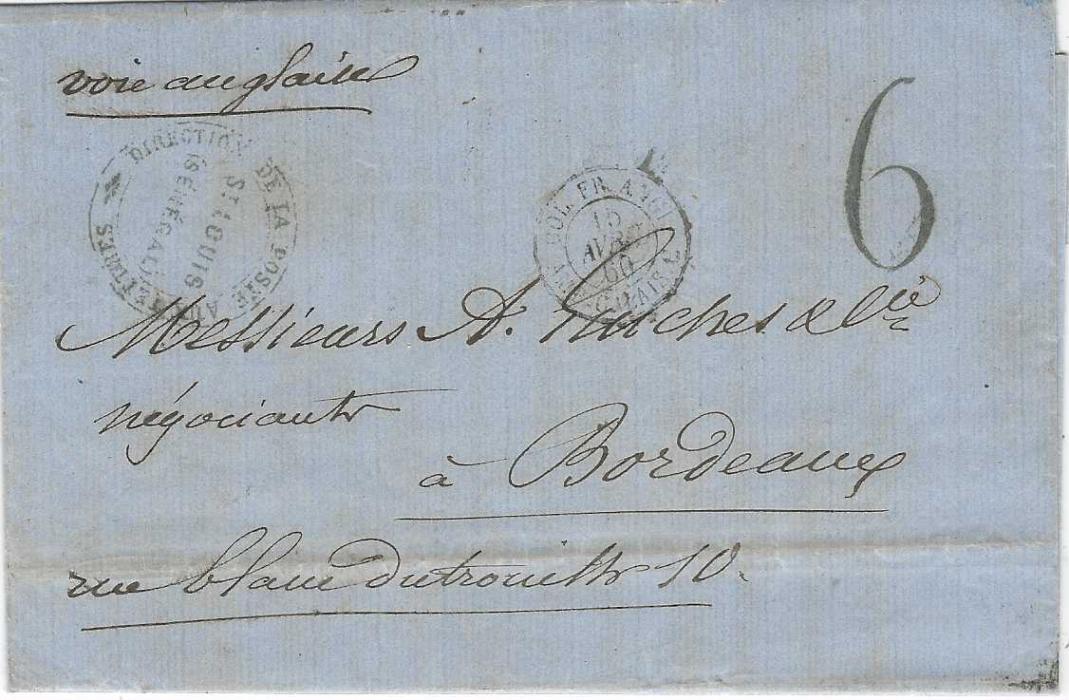 voie anglaise
6
DIRECTION DE LA POSTE AUX LETTRES
ST LOUIS
(SÉNÉGAL)
COL. FR. ANGL.
15
AVRIL
60
AMB. CALAIS
Messieurs A. Puches & Cie
négociants
à Bordeaux
rue blanc dutrouilh 10.